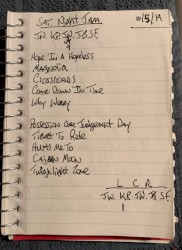 SAT. NIGHT JAM
10/5/19
JW. KP. JW. JB SE
HOPE IN A HOPELESS
MAGNOLIA
CROSSROADS
COME DOWN IN TIME
WHY WORRY
POSSESSION OVER JUDGEMENT DAY
TICKET TO RIDE
HURTS ME TO
CAJUN MOON
TWILIGHT ZONE
L C R
JW. KP. JW. JB SE